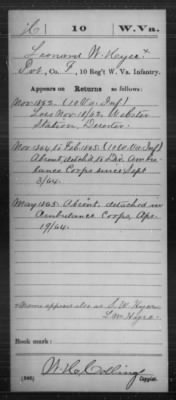 H | 10 | W. Va.
Leonard W. Hyre x
Pvt., Co. F, 10 Reg't W. Va. Infantry.
Appears on
Returns as follows:
Nov. 1862. (10 Va. Inf)
Loss Nov. 18/62. Webster
Station, Deserter.
Nov. 1864 to Feb. 1865. (10 W. Va. Inf)
Absent, detach'd to Div. Ambu-
lance Corps since Sept
3/64.
May 1865. Absent, detached in
Ambulance Corps, Apr.
19/64.
x Name appears also as S. W. Hyer
L. W. Hyre.
Book mark:
W. H. Collins
Copyist.